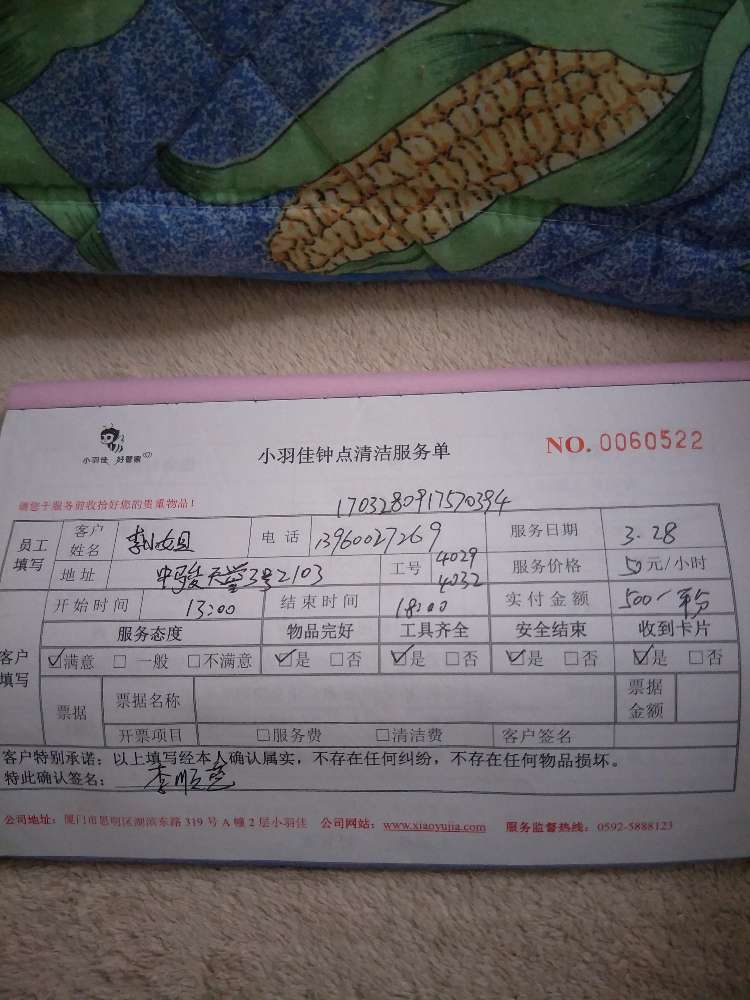 小羽佳 好管家
小羽佳钟点清洁服务单
NO. 0060522
请您于服务前收拾好您的贵重物品！
1703280917570394
员工填写 客户姓名 李小姐 电话 13960027269 服务日期 3.28
地址 中骏天誉3号2103 工号 4029 4032 服务价格 50元/小时
开始时间 13:00 结束时间 18:00 实付金额 500
服务态度 物品完好 工具齐全 安全结束 收到卡片
客户填写 ☑满意 □一般 □不满意 ☑是 □否 ☑是 □否 ☑是 □否 ☑是 □否
票据 票据名称 票据金额
开票项目 □服务费 □清洁费 客户签名
客户特别承诺：以上填写经本人确认属实，不存在任何纠纷，不存在任何物品损坏。
特此确认签名：
公司地址：厦门市思明区湖滨东路 319 号 A 幢 2 层小羽佳 公司网站：www.xiaoyujia.com 服务监督热线：0592-5888123